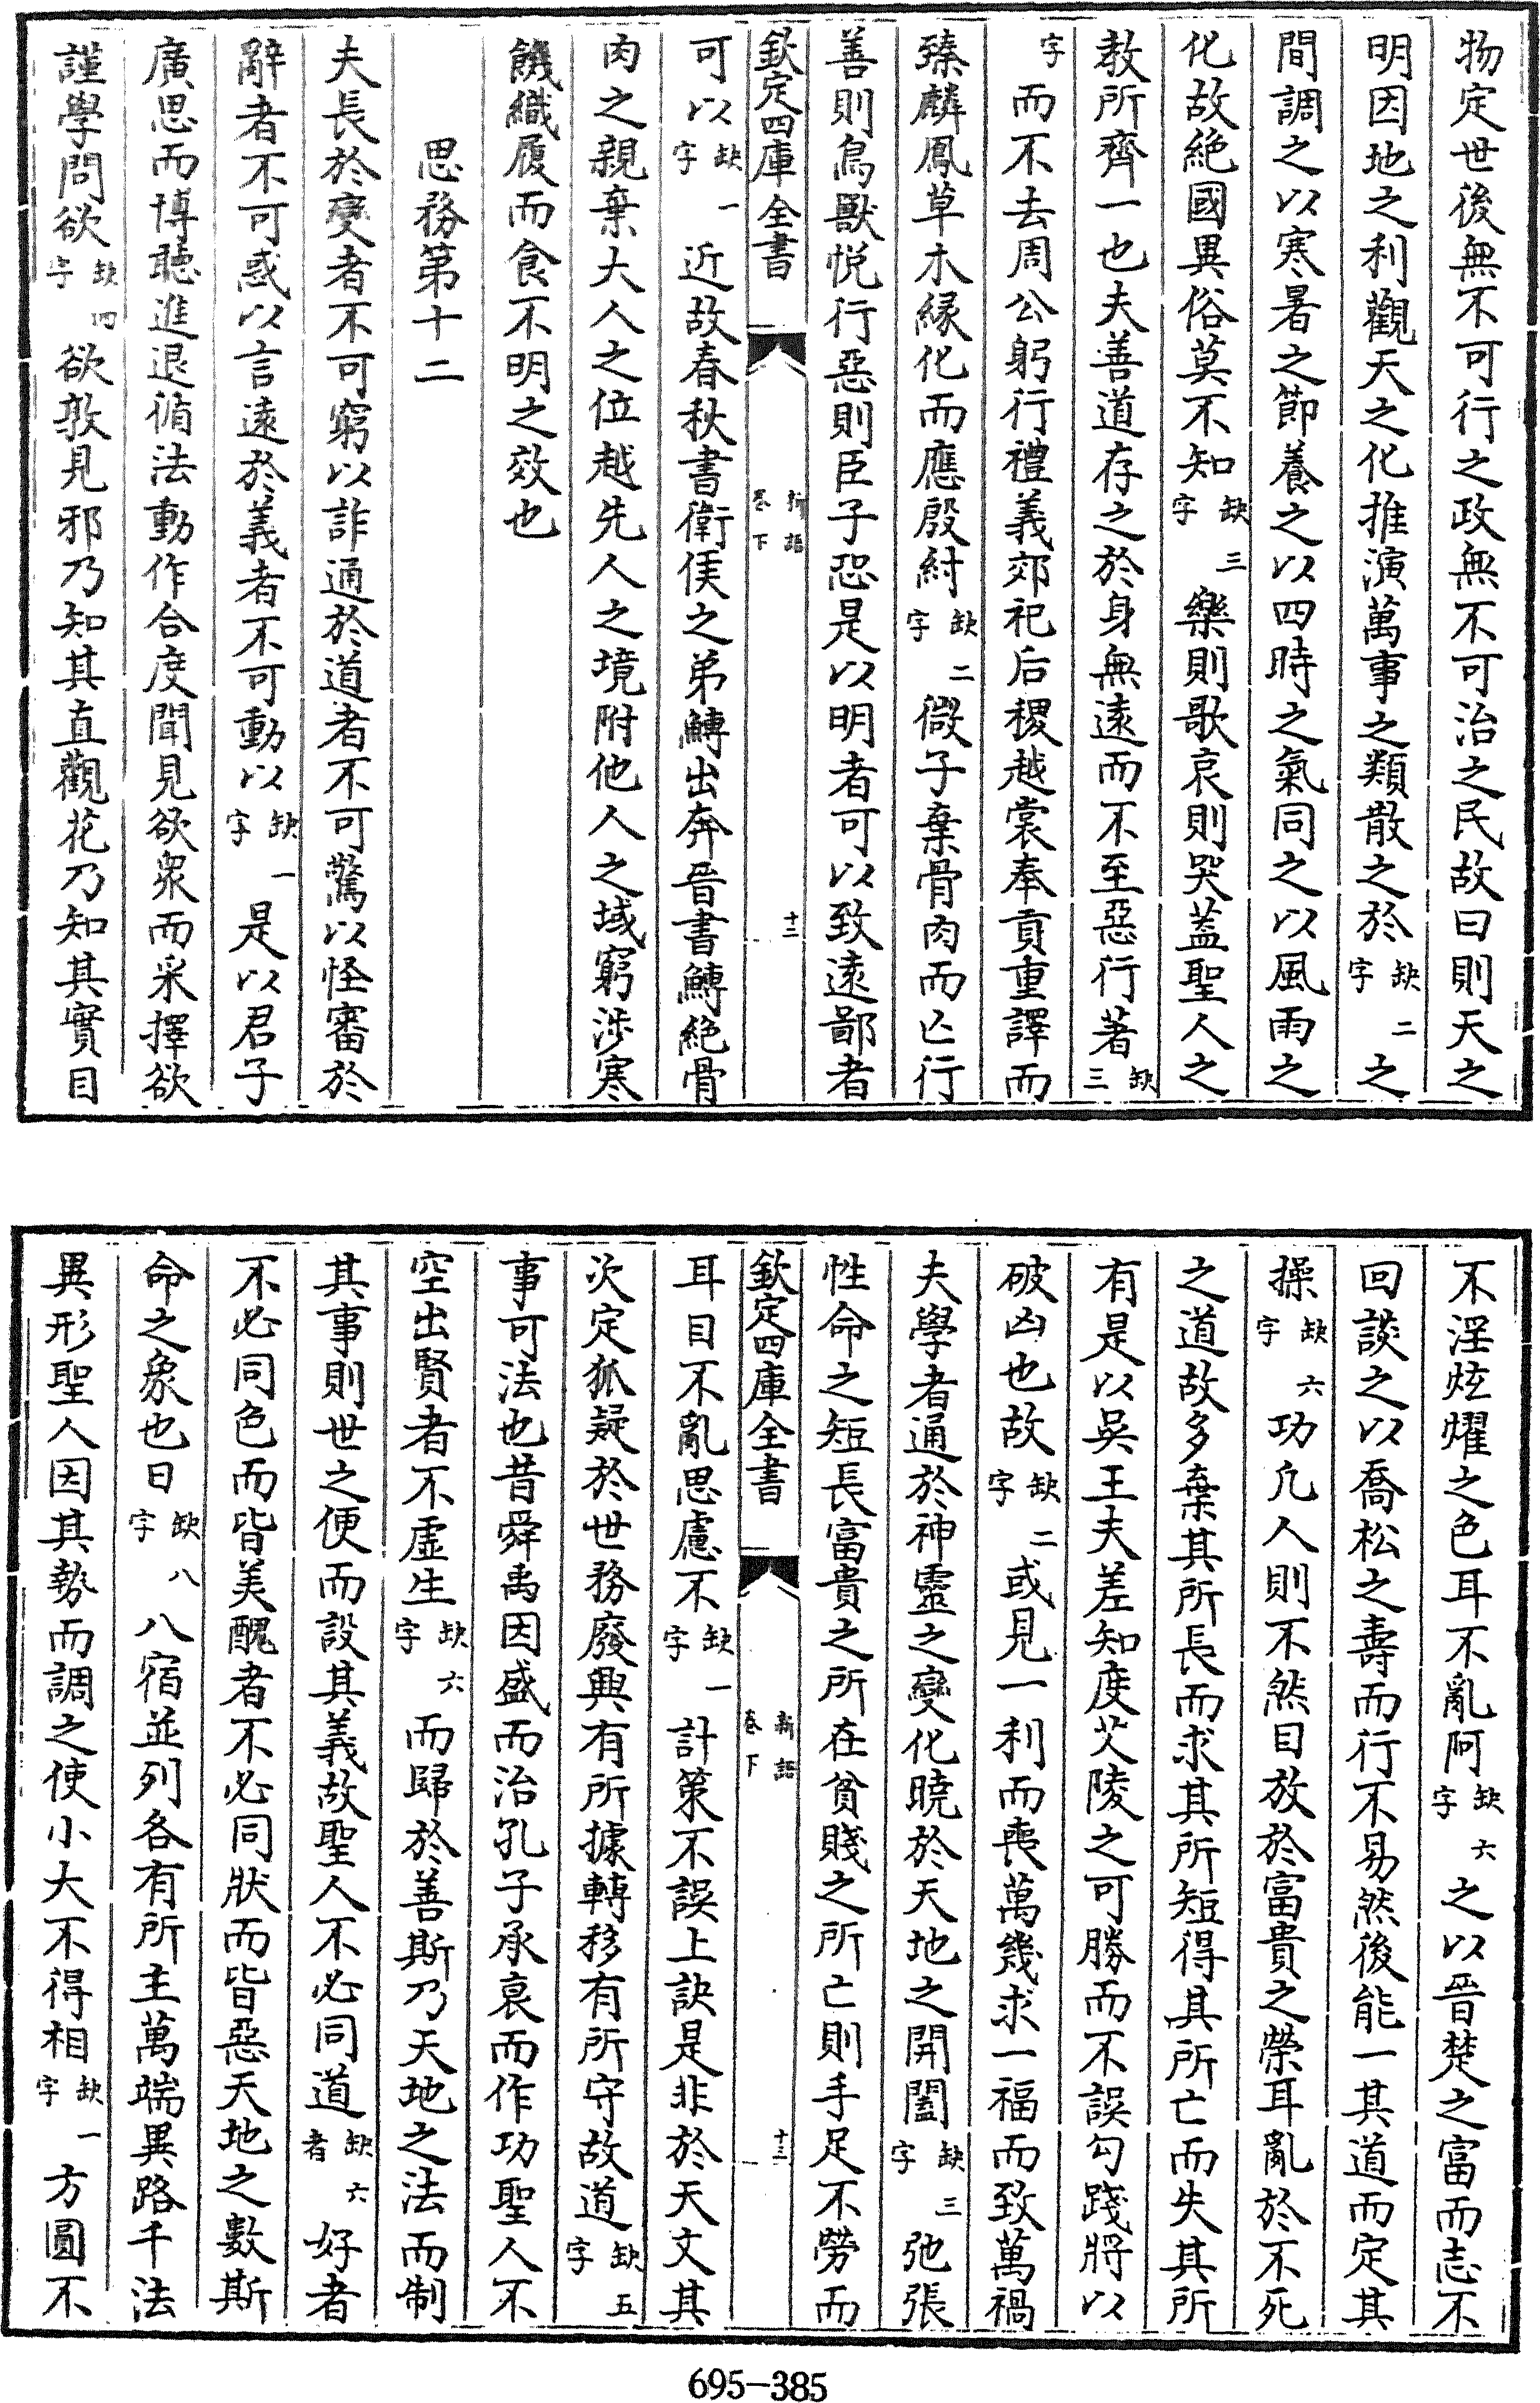 物定世後無不可行之政無不可治之民故曰則天之
明因地之利觀天之化推演萬事之類散之於缺二字之
間調之以寒暑之節養之以四時之氣同之以風雨之
化故絶國異俗莫不知缺三字樂則歌哀則哭蓋聖人之
教所齊一也夫善道存之於身無遠而不至惡行著缺三
字而不去周公躬行禮義郊祀后稷越裳奉貢重譯而
臻麟鳳草木緣化而應殷紂缺二字微子棄骨肉而亡行
善則鳥獸悅行惡則臣子恐是以明者可以致遠鄙者
欽定四庫全書 新語卷下 十二
可以缺一字近故春秋書衛侯之弟鱄出奔晉書鱄絶骨
肉之親棄大人之位越先人之境附他人之域窮涉寒
饑織履而食不明之效也
思務第十二
夫長於變者不可窮以詐通於道者不可驚以怪審於
辭者不可惑以言遠於義者不可動以缺一字是以君子
廣思而博聽進退循法動作合度聞見欲衆而采擇欲
謹學問欲缺四字欲敦見邪乃知其直觀花乃知其實目
不淫炫燿之色耳不亂阿缺六字之以晉楚之富而志不
回談之以喬松之壽而行不易然後能一其道而定其
操缺六字功凡人則不然目放於富貴之榮耳亂於不死
之道故多棄其所長而求其所短得其所亡而失其所
有是以吳王夫差知度艾陵之可勝而不誤勾踐將以
破凶也故缺二字或見一利而喪萬幾求一福而致萬禍
夫學者通於神靈之變化曉於天地之開闔缺三字弛張
性命之短長富貴之所在貧賤之所亡則手足不勞而
欽定四庫全書 新語卷下 十三
耳目不亂思慮不缺一字計策不誤上訣是非於天文其
次定狐疑於世務廢興有所據轉移有所守故道缺五字
事可法也昔舜禹因盛而治孔子承衰而作功聖人不
空出賢者不虛生缺六字而歸於善斯乃天地之法而制
其事則世之便而設其義故聖人不必同道缺六者好者
不必同色而皆美醜者不必同狀而皆惡天地之數斯
命之象也日缺八字八宿並列各有所主萬端異路千法
異形聖人因其勢而調之使小大不得相缺一字方圓不
695-385